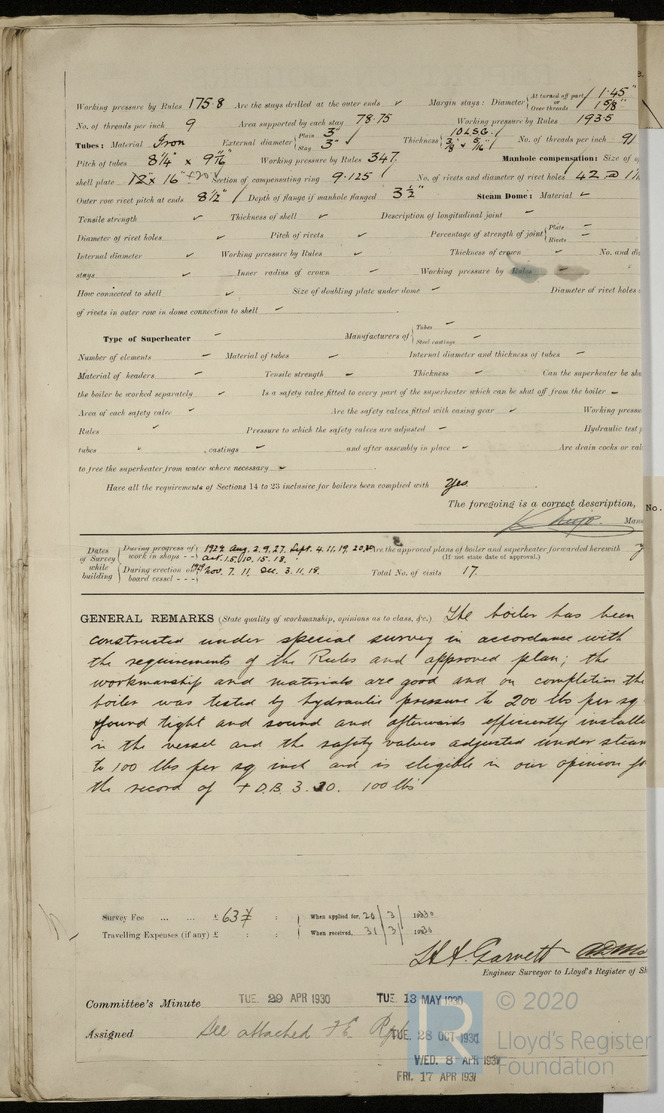 Working pressure by Rules 175.8 Are the stays drilled at the outer ends ✓ Margin stays: Diameter { At turned off part 1.45" or Over threads 1 5/8"
No. of threads per inch 9 Area supported by each stay 78.75 Working pressure by Rules 193.5
Tubes: Material Iron External diameter { Plain 3" Stay 3" Thickness { 10 LSG. 3/8 & 5/16" No. of threads per inch 9
Pitch of tubes 8 1/4" × 9 7/16" Working pressure by Rules 347. Manhole compensation: Size of
shell plate 12" × 16" Section of compensating ring 9.125 No. of rivets and diameter of rivet holes 42 @
Outer row rivet pitch at ends 8 1/2" Depth of flange if manhole flanged 3 1/2" Steam Dome: Material ✓
Tensile strength ✓ Thickness of shell ✓ Description of longitudinal joint –
Diameter of rivet holes ✓ Pitch of rivets ✓ Percentage of strength of joint { Plate – Rivets –
Internal diameter ✓ Working pressure by Rules ✓ Thickness of crown – No. and
stays ✓ Inner radius of crown ✓ Working pressure by Rules
How connected to shell ✓ Size of doubling plate under dome ✓ Diameter of rivet holes
of rivets in outer row in dome connection to shell ✓
Type of Superheater – Manufacturers of { Tubes – Steel castings –
Number of elements – Material of tubes ✓ Internal diameter and thickness of tubes –
Material of headers – Tensile strength ✓ Thickness ✓ Can the superheater be
the boiler be worked separately ✓ Is a safety valve fitted to every part of the superheater which can be shut off from the boiler –
Area of each safety valve ✓ Are the safety valves fitted with easing gear ✓ Working
Rules ✓ Pressure to which the safety valves are adjusted – Hydraulic test
tubes , castings ✓ and after assembly in place ✓ Are drain cocks or
to free the superheater from water where necessary ✓
Have all the requirements of Sections 14 to 23 inclusive for boilers been complied with Yes
The foregoing is a correct description,
No.
Dates of Survey while building { During progress of work in shops - - 1929. Aug. 2. 9. 27. Sept. 4. 11. 19. 20. Oct. 1. 5. 10. 15. 18. Are the approved plans of boiler and superheater forwarded herewith
(If not state date of approval.)
During erection on board vessel - - - 1929 Nov. 7. 11, Dec. 3. 11. 18. Total No. of visits 17.
GENERAL REMARKS (State quality of workmanship, opinions as to class, &c.) The boiler has been
constructed under special survey in accordance with
the requirements of the Rules and approved plan; the
workmanship and materials are good and on completion the
boiler was tested by hydraulic pressure to 200 lbs per sq
found tight and sound and afterwards efficiently
in the vessel and the safety valves adjusted under steam
to 100 lbs per sq inch and is eligible in our opinion
the record of + D.B. 3. 30. 100 lbs
Survey Fee ... ... £ 63 : : When applied for, 20 / 3 / 1930
Travelling Expenses (if any) £ : : When received, 31 / 3 / 1930
H.A. Garnett
Engineer Surveyor to Lloyd's Register of
Committee's Minute TUE. 29 APR 1930 TUE. 13 MAY 1930
Assigned See attached TUE. 28 OCT 1930
WED. 8 APR 1931
FRI. 17 APR 1931
© 2020
Lloyd's Register
Foundation